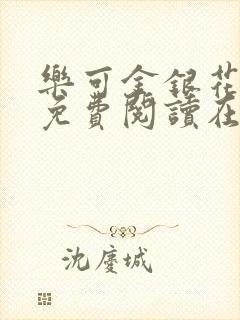 樂可金銀花
免費閱讀在
沈慶城